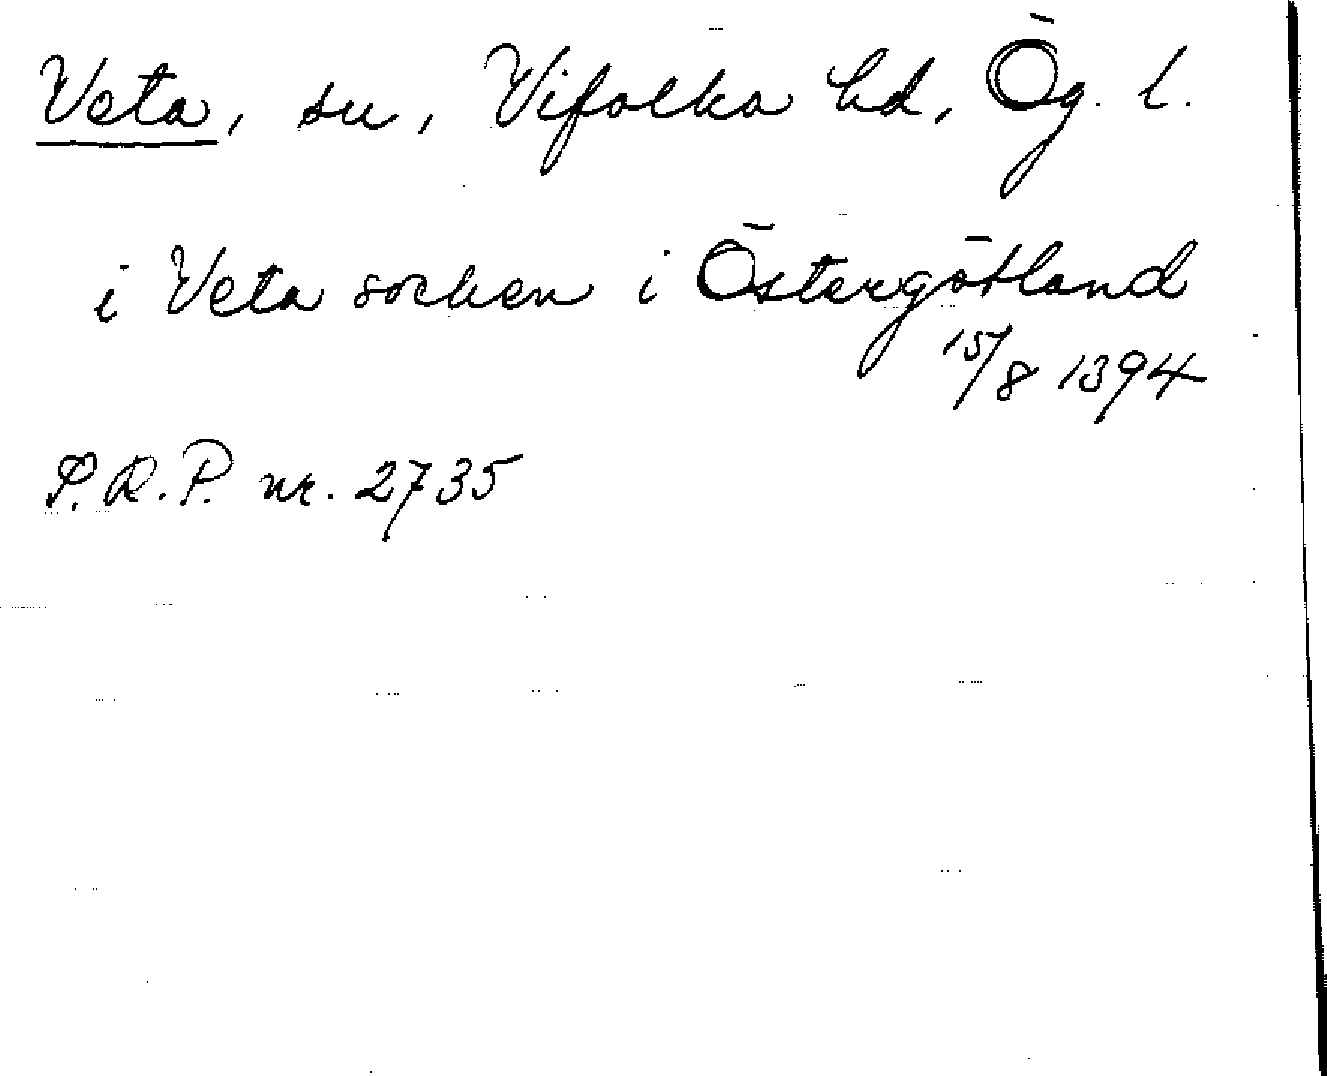 Veta, sn, Vifolka hd, Ög. l.
i Veta socken i Östergötland
15/8 1394
P.R.P. nr. 2735